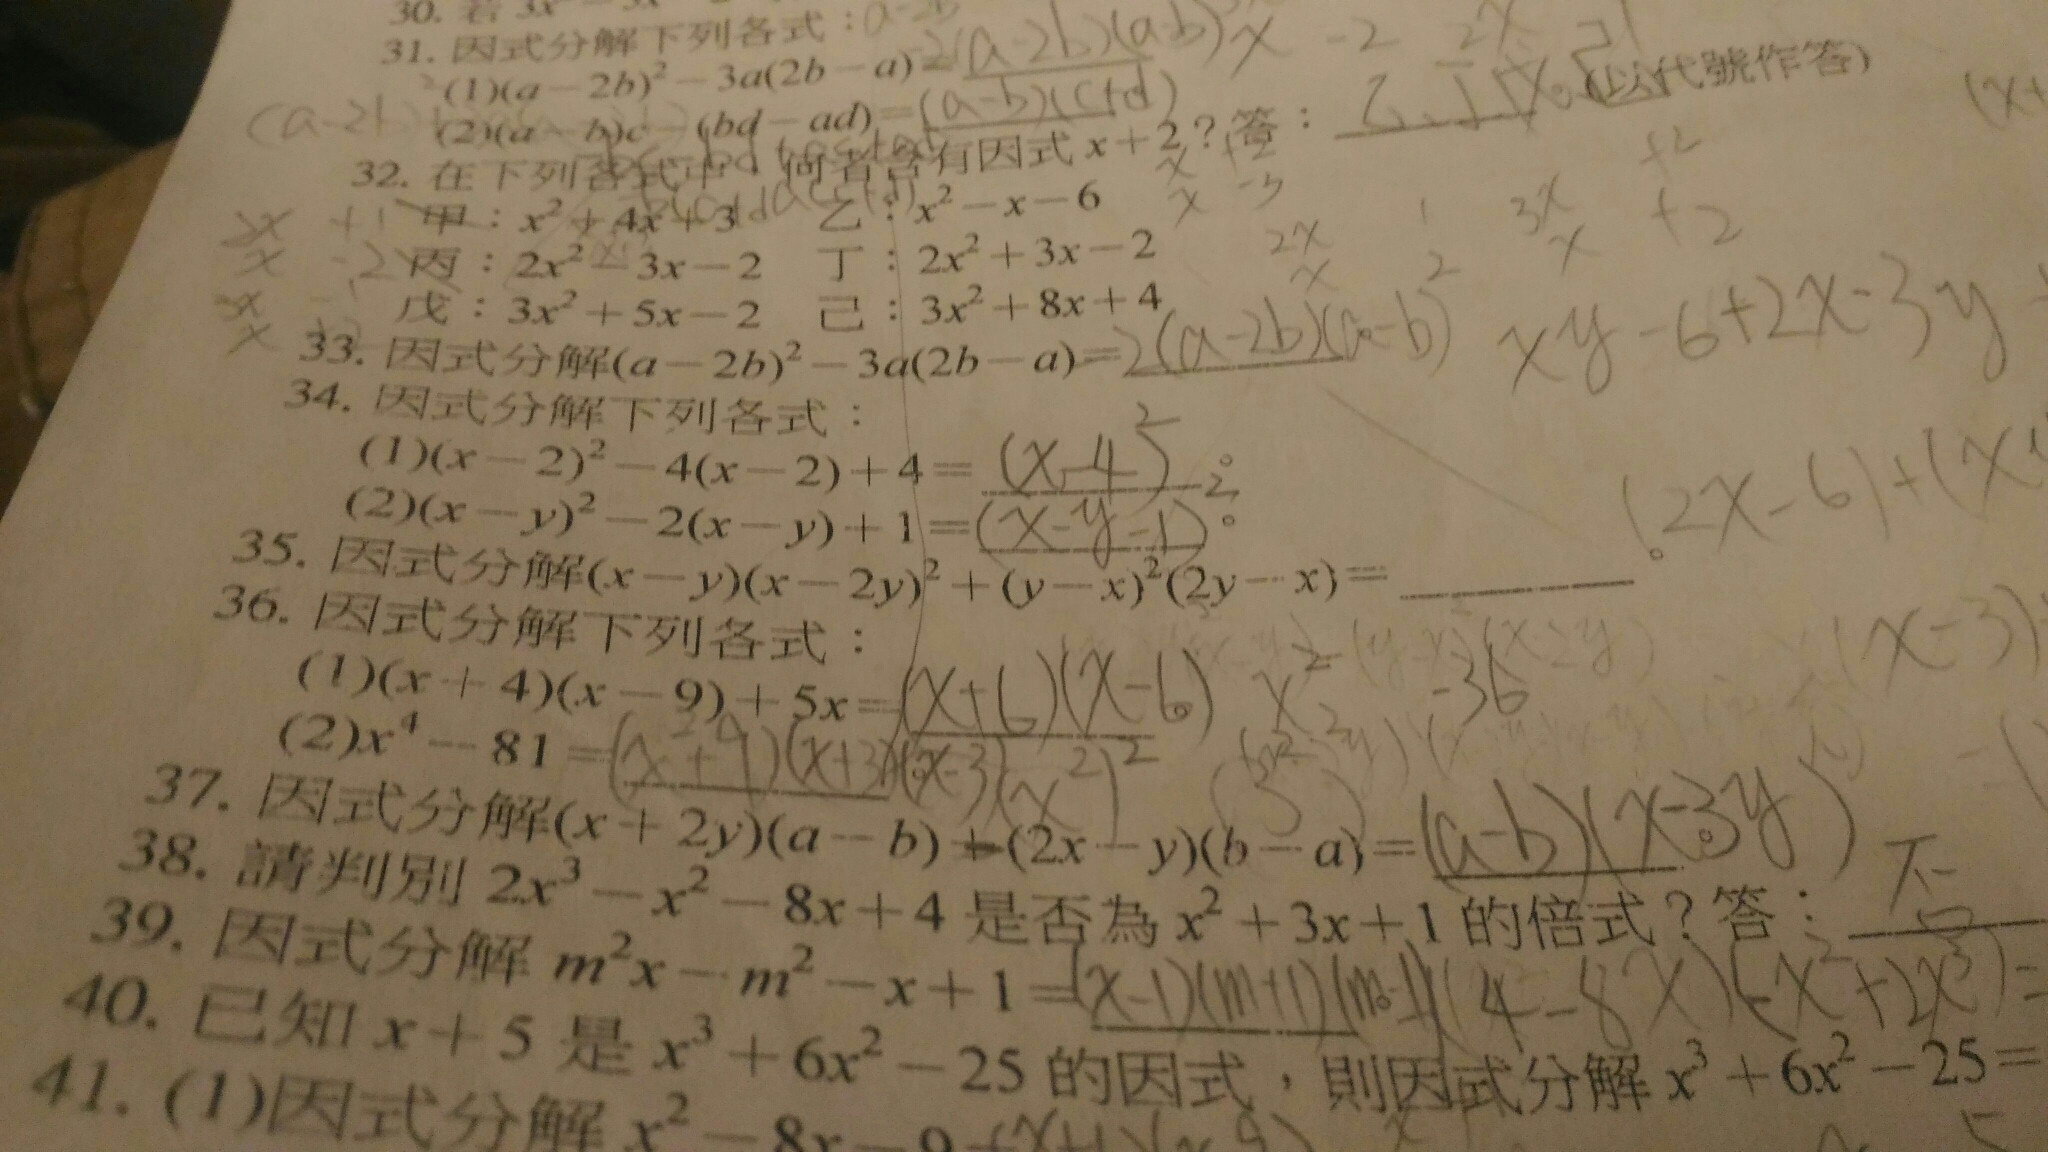 30. 若 3x²
31. 因式分解下列各式：
(1)(a－2b)²－3a(2b－a)=2(a-2b)(a-b)
(2)(a－b)c－(bd－ad)=(a-b)(c+d)
32. 在下列各式中，何者含有因式 x＋2？答：乙、丁 (以代號作答)
甲：x²＋4x＋3 乙：x²－x－6
丙：2x²－3x－2 丁：2x²＋3x－2
戊：3x²＋5x－2 己：3x²＋8x＋4
33. 因式分解(a－2b)²－3a(2b－a)=2(a-2b)(a-b)
xy-6+2x-3y
34. 因式分解下列各式：
(1)(x－2)²－4(x－2)＋4=(x-4)²；
(2)(x－y)²－2(x－y)＋1=(x-y-1)²。
(2x-6)+(x
35. 因式分解(x－y)(x－2y)²＋(y－x)²(2y－x)=
36. 因式分解下列各式：
(1)(x＋4)(x－9)＋5x=(x+6)(x-6) x² -36
(x-3)
(2)x⁴－81=(x²+9)(x+3)(x-3) (x²)²
37. 因式分解(x＋2y)(a－b)＋(2x－y)(b－a)=(a-b)(x-3y)
38. 請判別 2x³－x²－8x＋4 是否為 x²＋3x＋1 的倍式？答：否
39. 因式分解 m²x－m²－x＋1=(x-1)(m+1)(m-1) (4-8x)(-x²+2x³)=
40. 已知 x＋5 是 x³＋6x²－25 的因式，則因式分解 x³＋6x²－25=
41. (1)因式分解 x²－8x－9=(x+1)(x-9)